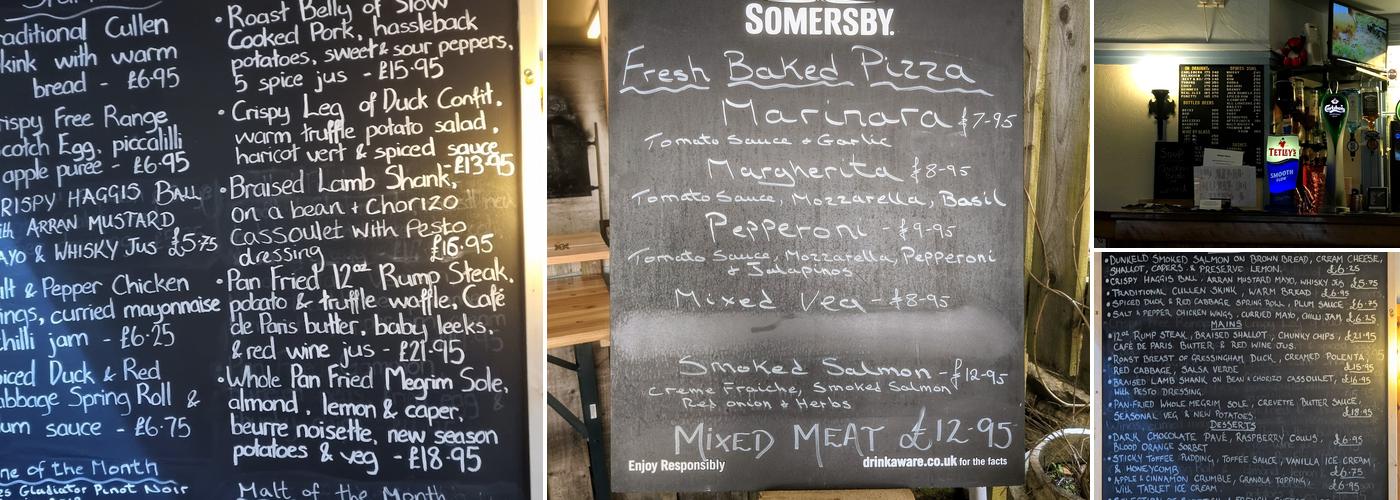 raditional Cullen
kink with warm
bread - £6.95
rispy Free Range
cotch Egg, piccalilli
apple puree - £6.95
RISPY HAGGIS BALL
ith ARRAN MUSTARD
AYO & WHISKY JUS £5.75
lt & Pepper Chicken
ings, curried mayonnaise
hilli jam - £6.25
iced Duck & Red
abbage Spring Roll &
um sauce - £6.75
ne of the Month
es Gladiator Pinot Noir
• Roast Belly of Slow
Cooked Pork, hassleback
potatoes, sweet & sour peppers,
5 spice jus - £15.95
• Crispy Leg of Duck Confit,
warm truffle potato salad,
haricot vert & spiced sauce
- £13.95
• Braised Lamb Shank,
on a bean + Chorizo
Cassoulet with Pesto
dressing £16.95
• Pan Fried 12oz Rump Steak.
potato & truffle waffle, Café
de Paris butter, baby leeks,
& red wine jus - £21.95
• Whole Pan Fried Megrim Sole,
almond, lemon & caper,
beurre noisette, new season
potatoes & veg - £18.95
Malt of the Month
SOMERSBY.
Fresh Baked Pizza
Marinara £7-95
Tomato Sauce & Garlic
Margherita £8-95
Tomato Sauce, Mozzarella, Basil
Pepperoni - £9-95
Tomato Sauce, Mozzarella, Pepperoni
& Jalapinos
Mixed Veg - £8-95
Smoked Salmon - £12-95
Creme Fraiche, Smoked Salmon
Red onion & Herbs
MIXED MEAT £12.95
Enjoy Responsibly
drinkaware.co.uk for the facts
ON DRAUGHT
BOTTLED BEERS
Carlsberg
TETLEY'S
SMOOTH
FLOW
• DUNKELD SMOKED SALMON ON BROWN BREAD, CREAM CHEESE,
SHALLOT, CAPERS & PRESERVE LEMON. £6.25
• CRISPY HAGGIS BALL, ARRAN MUSTARD MAYO, WHISKY JUS £5.75
• TRADITIONAL CULLEN SKINK, WARM BREAD £6.95
• SPICED DUCK & RED CABBAGE SPRING ROLL, PLUM SAUCE £6.75
• SALT & PEPPER CHICKEN WINGS, CURRIED MAYO, CHILLI JAM £6.25
MAINS
• 12oz RUMP STEAK, BRAISED SHALLOT, CHUNKY CHIPS, £21.95
CAFÉ DE PARIS BUTTER & RED WINE JUS.
• ROAST BREAST OF GRESSINGHAM DUCK, CREAMED POLENTA,
RED CABBAGE, SALSA VERDE £15.95
• BRAISED LAMB SHANK ON BEAN & CHORIZO CASSOULET, £16.95
WITH PESTO DRESSING
• PAN-FRIED WHOLE MEGRIM SOLE, CREVETTE BUTTER SAUCE,
SEASONAL VEG & NEW POTATOES. £18.95
DESSERTS
• DARK CHOCOLATE PAVÉ, RASPBERRY COULIS, £6.95
BLOOD ORANGE SORBET
• STICKY TOFFEE PUDDING, TOFFEE SAUCE, VANILLA ICE CREAM
& HONEYCOMB £6.75
• APPLE & CINNAMON CRUMBLE, GRANOLA TOPPING,
WITH TABLET ICE CREAM £6.95